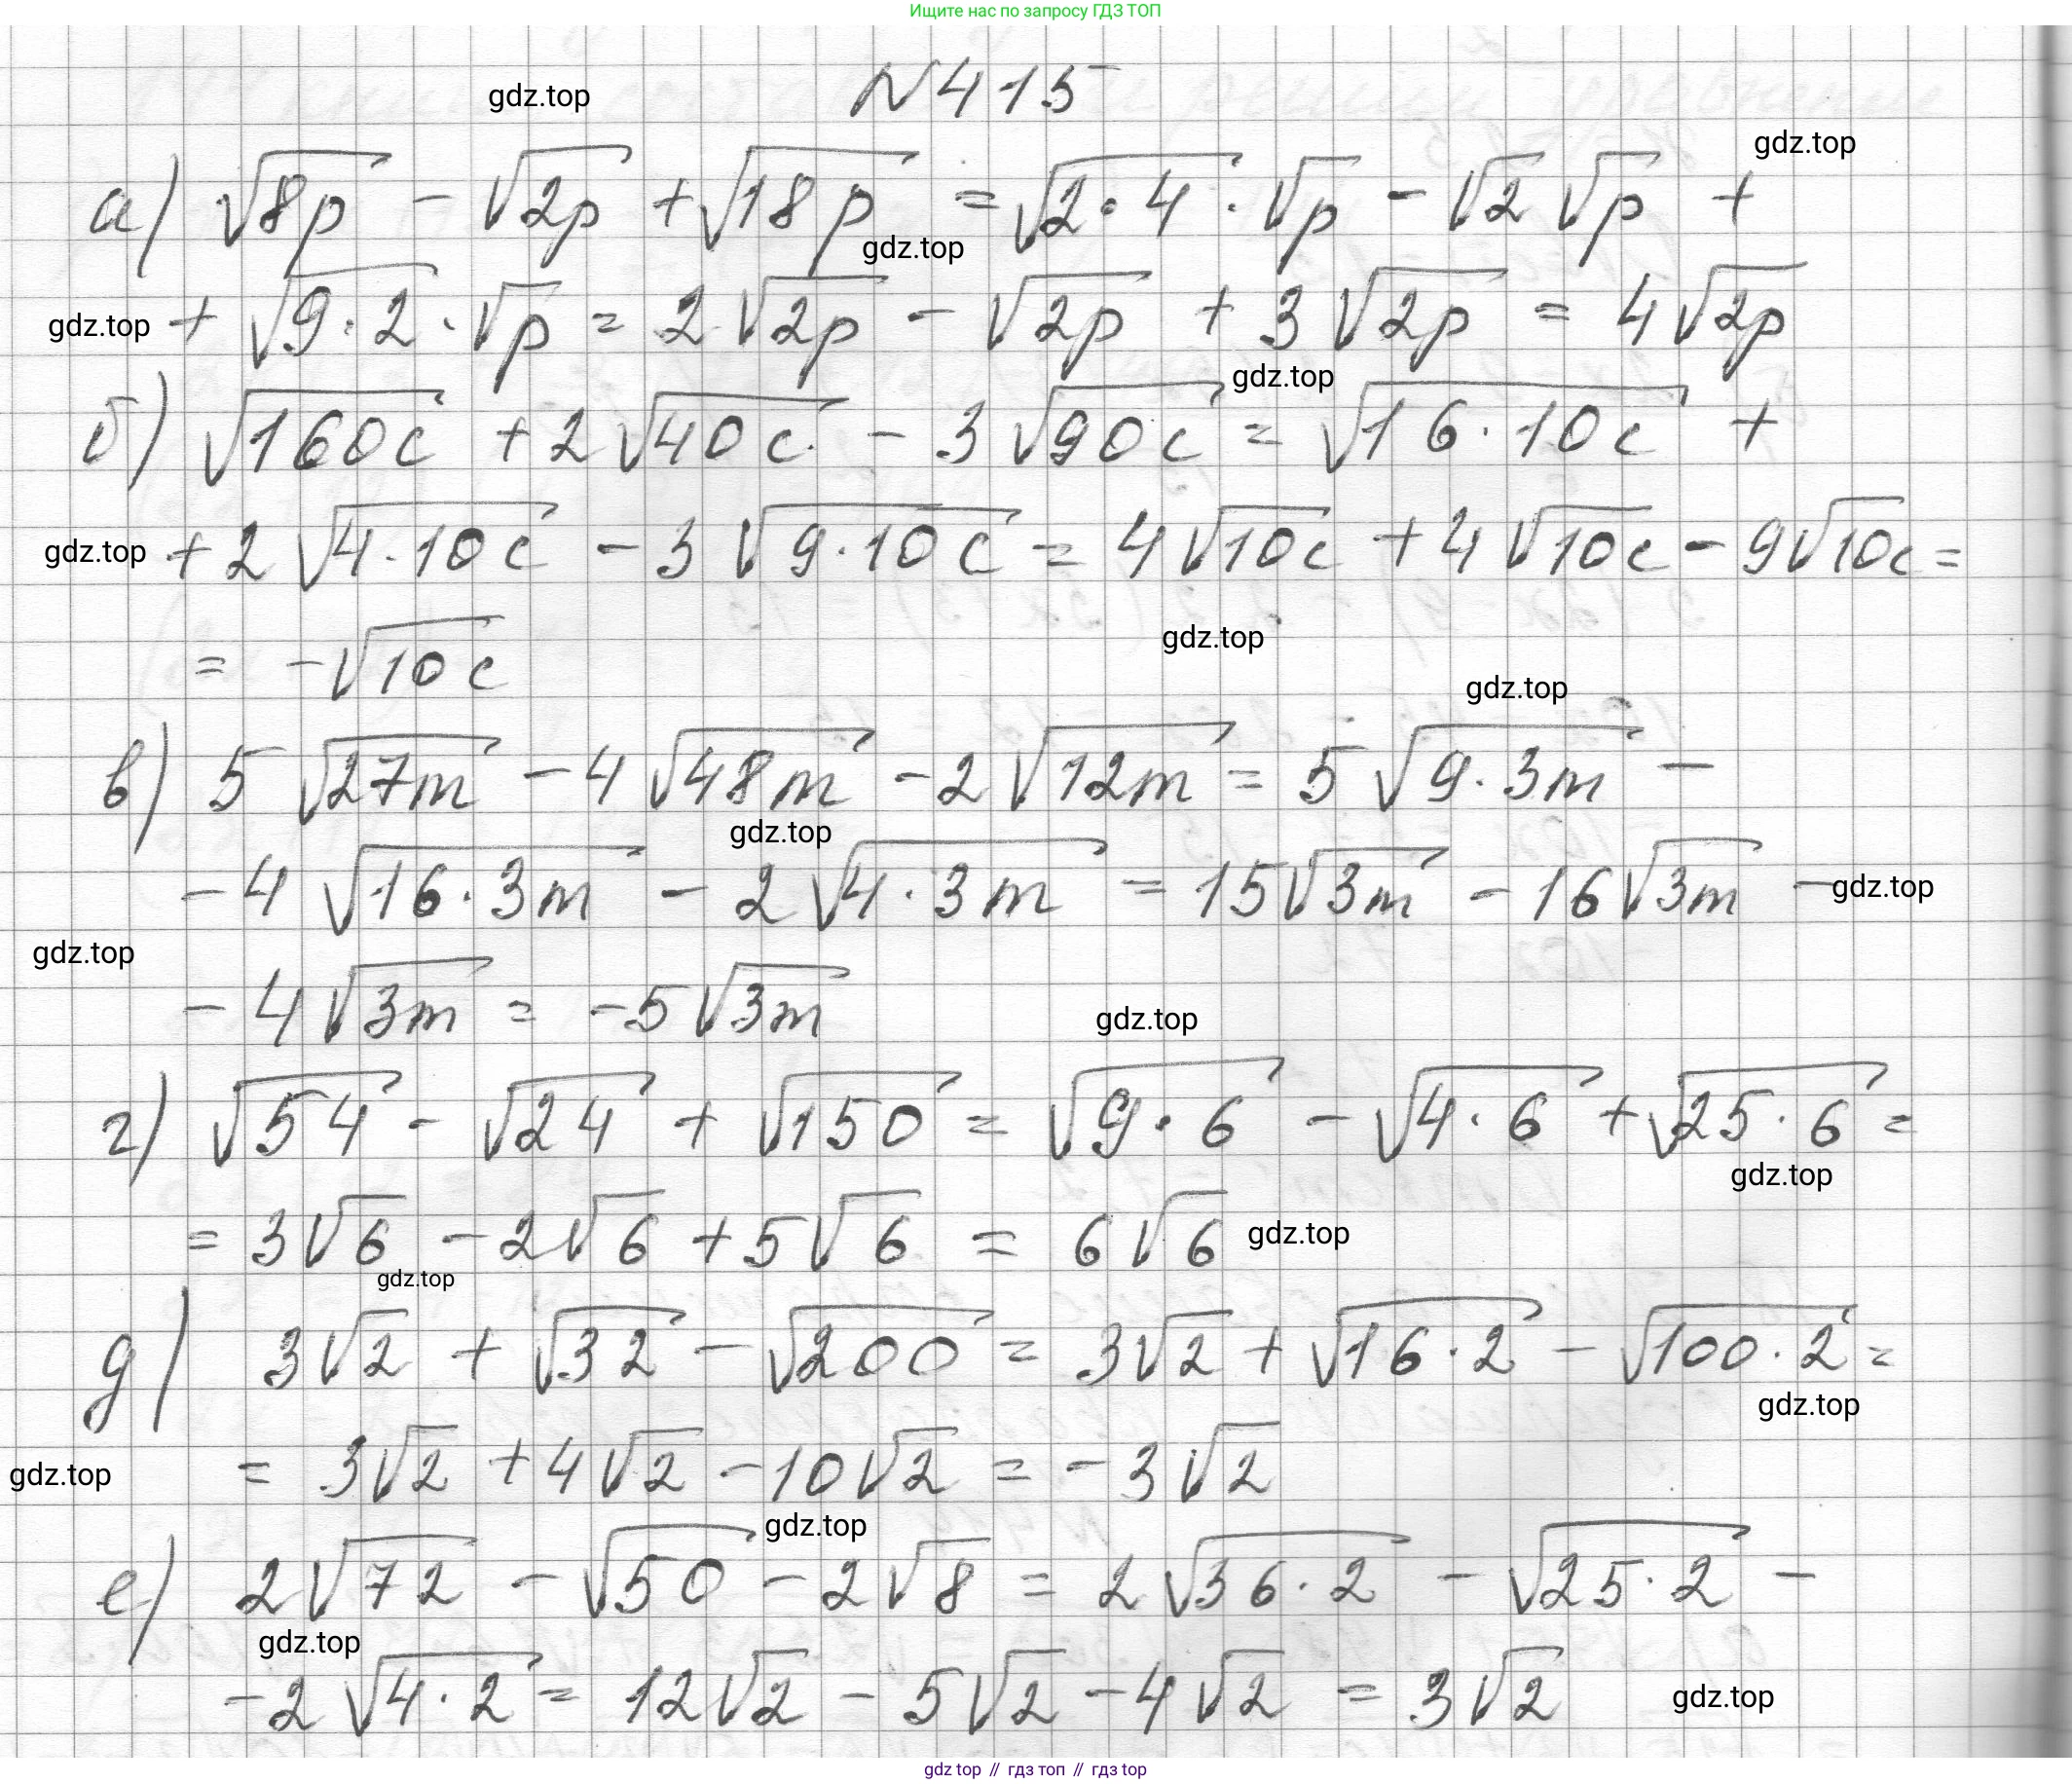 Ищите нас по запросу ГДЗ ТОП
gdz.top
N415
gdz.top
а) √8p - √2p + √18p = √2·4 · √p - √2 √p +
gdz.top
gdz.top + √9·2 · √p = 2√2p - √2p + 3√2p = 4√2p
gdz.top
б) √160c + 2√40c - 3√90c = √16·10c +
gdz.top + 2√4·10c - 3√9·10c = 4√10c + 4√10c - 9√10c =
gdz.top
= -√10c
gdz.top
в) 5√27m - 4√48m - 2√12m = 5√9·3m -
gdz.top
- 4√16·3m - 2√4·3m = 15√3m - 16√3m - gdz.top
gdz.top
- 4√3m = -5√3m
gdz.top
г) √54 - √24 + √150 = √9·6 - √4·6 + √25·6 =
gdz.top
= 3√6 - 2√6 + 5√6 = 6√6 gdz.top
gdz.top
д) 3√2 + √32 - √200 = 3√2 + √16·2 - √100·2 =
gdz.top
gdz.top = 3√2 + 4√2 - 10√2 = -3√2
gdz.top
е) 2√72 - √50 - 2√8 = 2√36·2 - √25·2 -
gdz.top
- 2√4·2 = 12√2 - 5√2 - 4√2 = 3√2 gdz.top
gdz top // гдз топ // гдз top